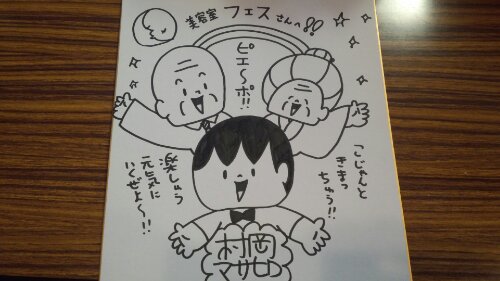 美容室 フェスさんへ!!
ピエ〜ポ!!
こじゃんと
きまっ
ちゅう!!
楽しゅう
元気に
いくぜよ〜!!
村岡
マサヒロ